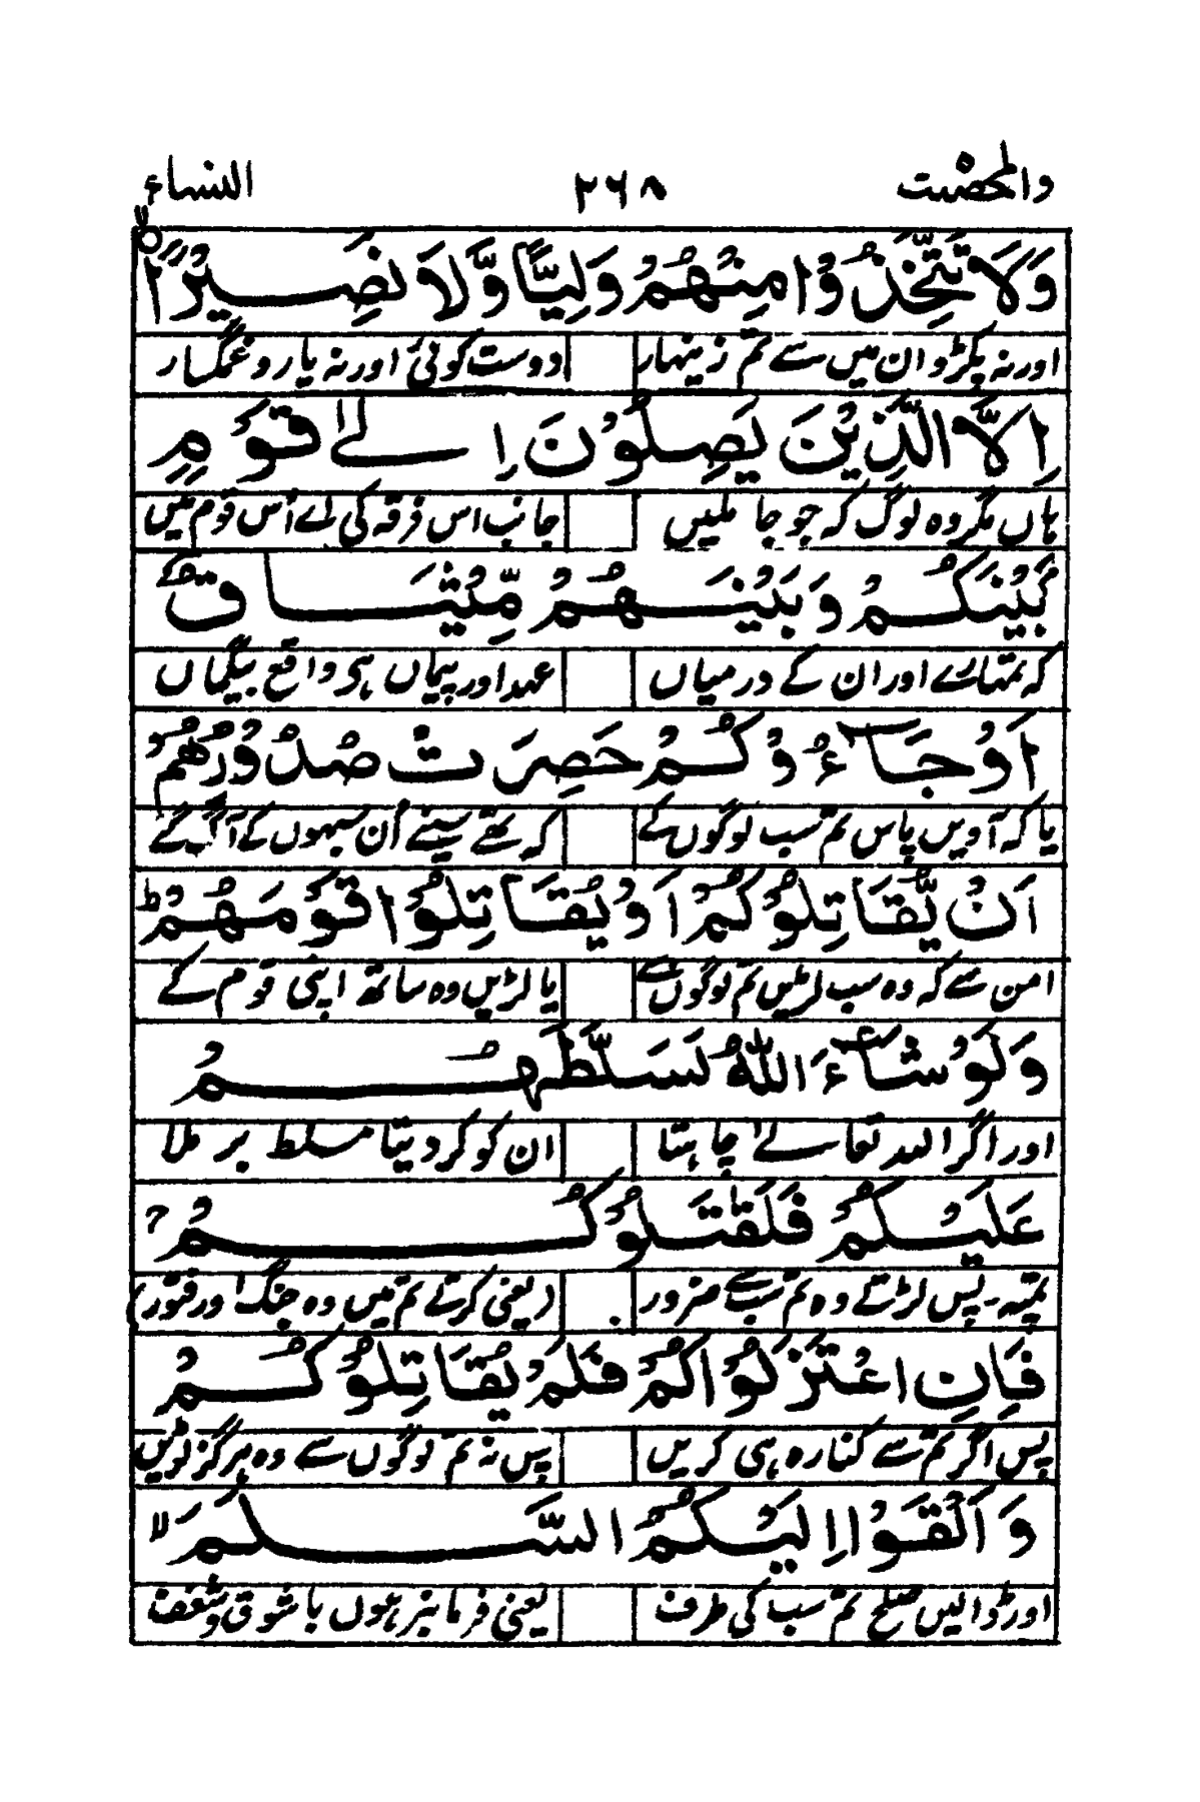 والمحصنت ۲۶۸ النساء
وَلَا تَتَّخِذُوْا مِنْهُمْ وَلِيًّا وَّلَا نَصِيْرًا ۙ
اور نہ پکڑو ان میں سے تم زینہار دوست کوئی اور نہ یار و غمگسار
اِلَّا الَّذِيْنَ يَصِلُوْنَ اِلٰے قَوْمٍ
ہاں مگر وہ لوگ کہ جو جا ملیں جانب اس فرقہ کی لے اُس قوم میں
بَيْنَكُمْ وَبَيْنَهُمْ مِّيْثَاقٌ
کہ تمہارے اور ان کے درمیاں عہد اور پیماں ہی واقع بیگماں
اَوْ جَآءُوْكُمْ حَصِرَتْ صُدُوْرُهُمْ
یا کہ آویں پاس تم سب لوگوں کے کہ تھے سینے اُن سبہوں کے آ گے
اَنْ يُّقَاتِلُوْكُمْ اَوْ يُقَاتِلُوْا قَوْمَهُمْ ؕ
امن سے کہ وہ سب لڑیں تم لوگوں سے یا لڑیں وہ ساتھ اپنی قوم کے
وَلَوْ شَآءَ اللّٰهُ لَسَلَّطَهُمْ
اور اگر اللہ تعالےٰ چاہتا ان کو کر دیتا مسلط بر ملا
عَلَيْكُمْ فَلَقٰتَلُوْكُمْ ۚ
تمپہ۔ پس لڑتے وہ تم سب سے ضرور (یعنی کرتے تم میں وہ جنگ اور فتور)
فَاِنِ اعْتَزَلُوْاكُمْ فَلَمْ يُقَاتِلُوْكُمْ
پس اگر تم سے کنارہ ہی کریں پس نہ تم لوگوں سے وہ ہرگز لڑیں
وَاَلْقَوْا اِلَيْكُمُ السَّلَمَ ۙ
اور ڈوالیں صلح تم سب کی طرف یعنی فرمانبر ہوں با شوق و شغف